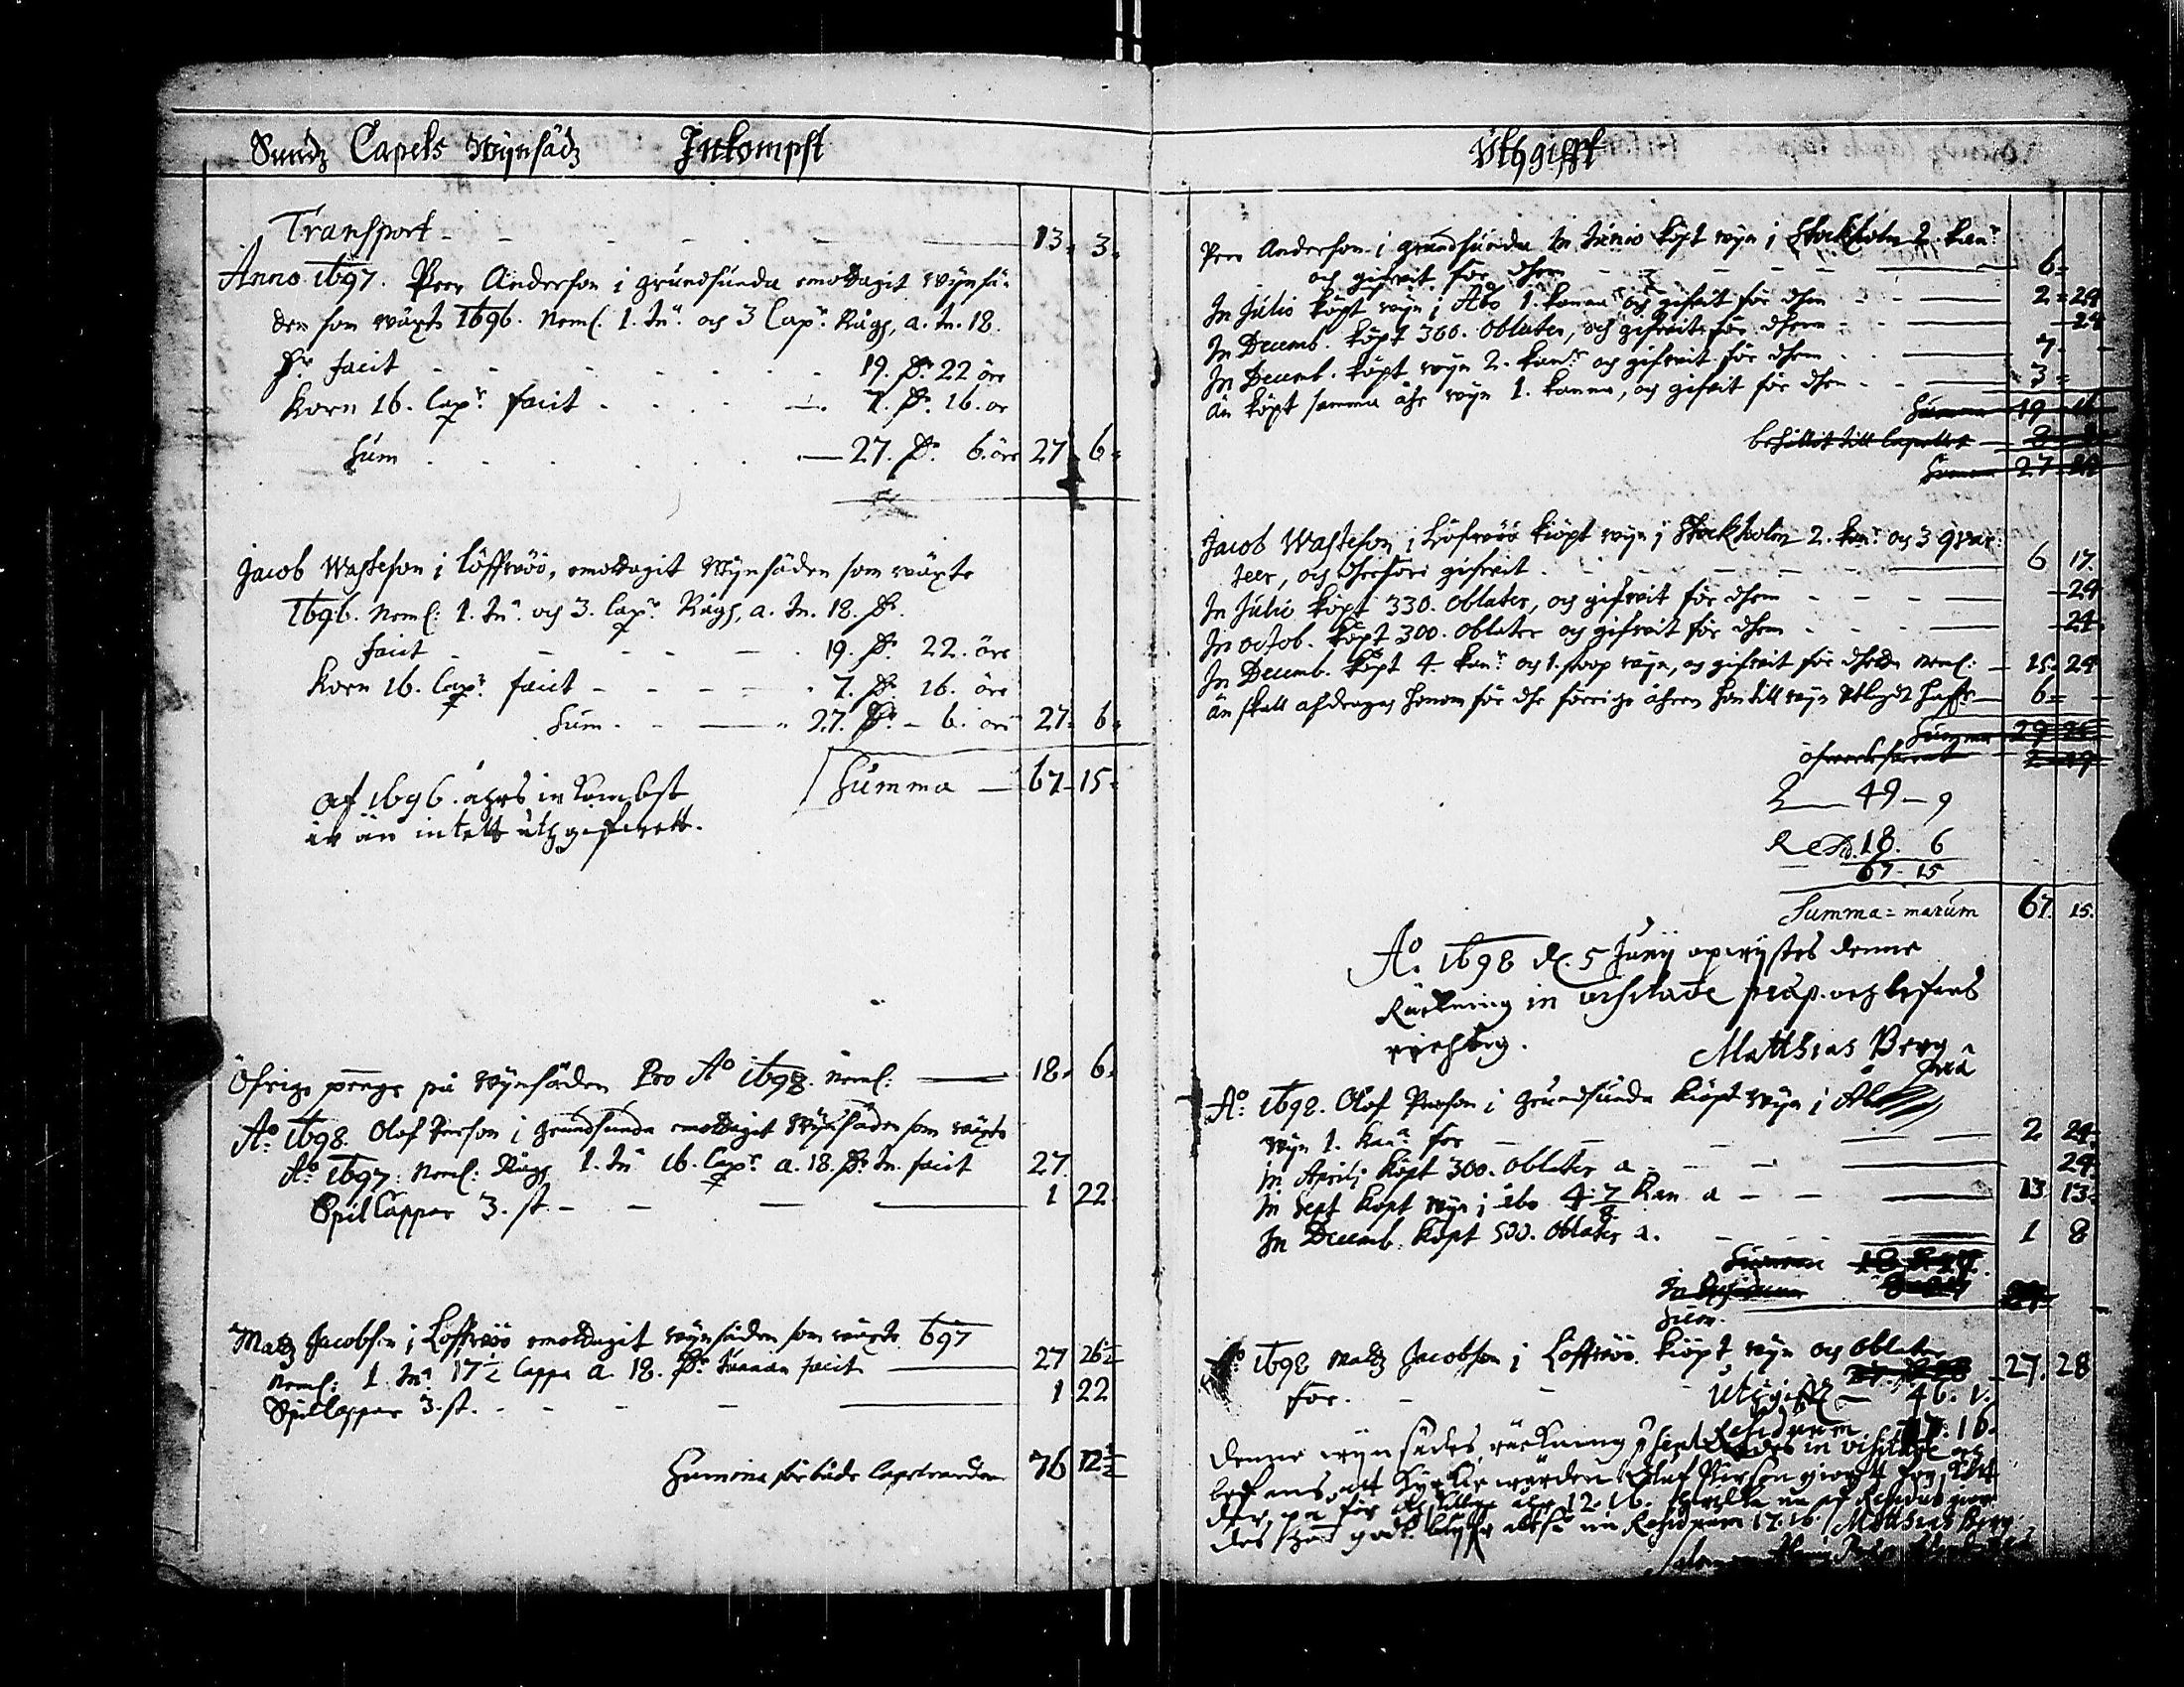 Sundz Capels Wijnsädz Inkompst
Transport 13 3
Anno 1697. Peer Anderson i grundsunda emottagit wijnsä-
den som wäxte 1696. Neml. 1. Tn. och 3 Capr. Rågh, a. tn. 18.
Dr. facit 19. Dr. 22 öre
Korn 16. Capr. facit 7. Dr. 16. ör
Sum 27. Dr. 6. öre 27 6
Jacob Wasteson i Löffwöö, emottagit Wijnsäden som wäxte
1696. Neml: 1. Tn. och 3. Capr. Rågh, a. tn. 18. Dr.
facit 19. Dr. 22. öre
Korn 16. Capr. facit 7. Dr. 16. öre
Sum 27. Dr. 6. öre 27 6
Summa 67 15
af 1696. åhrs inkombst
är än intett uthgifwett.
Öfrige penge på Wijnsäden Pro Ao 1698. Neml: 18 6
Ao. 1698. Olof Person i Grundsunda emottagit Wijnsäden som wäxte
Ao 1697: Neml: Rågh 1. Tn 16. Capr. a. 18. Dr. tn. facit 27.
Spilcappar 3. st. 1 22
Matz Jacobson i Löffwöö emottagit wijnsäden som wäxte 1697
Neml: 1. Tn 17½ Cappa a. 18. Dr. tunnan facit 27 26½
Spilcappar 3. st. 1 22
Summa för både Capelwerden 76 12½
Uthgifft
Peer Anderson i grundsunda In Junio köpt wijn i Stockholm 2. kanr
och gifwit för dhem 6
In Julio köpt wijn i Åbo 1. kanna och gifwit för dhen 2 24
In Decemb. köpt 360. oblater, och gifwit för dhem 24
In Decemb. köpt wijn 2. kanr och gifwit för dhem 7
än köpt samma åhr wijn 1. kanna, och gifwit för dhen 3
Summa 19 16
behållit till Capellet
Summa 27
Jacob Wasteson i Löfwöö kiöpt wijn i Stockholm 2. kanr och 3 qwar-
teer, och dherföre gifwit 6 17.
In Julio köpt 330. oblater, och gifwit för dhem 24
In octob. köpt 300. oblater och gifwit för dhem 24
In Decemb. köpt 4. kanr och 1. stoop wijn, och gifwit för dhetta Neml: 15 24
än skall afdragas honom för dhe förrige åhren han till wijn uthlagdt haffr 6
Summa 29
49 9
Resid. 18. 6
67. 15
Summa=marum 67. 15.
Ao. 1698 d. 5 Junij opwijstes denne
Räckning in visitatione præp. och befans
richtig.
Matthias Berg
Ao: 1698. Olof Person i Grundsunda kiöpt wijn i
wijn 1. kana för 2 24
In Aprilj köpt 300. oblater a 24
In Sept köpt wijn i åbo 4 7/8 kan a 13 13
In Decemb. köpt 500. oblater a. 1 8
Summa
Sum.
Ao 1698 Matz Jacobson i Löffwöö kiöpt wijn och oblater
för. 27. 28
Uthgift 46. 1.
Residuum 17. 16.
denne wijnsädes räckning in visitatione och
befans, att kyrkiewärden Olof Person giordt
12. 16.
Residuum 17. 16. Matthias Berg